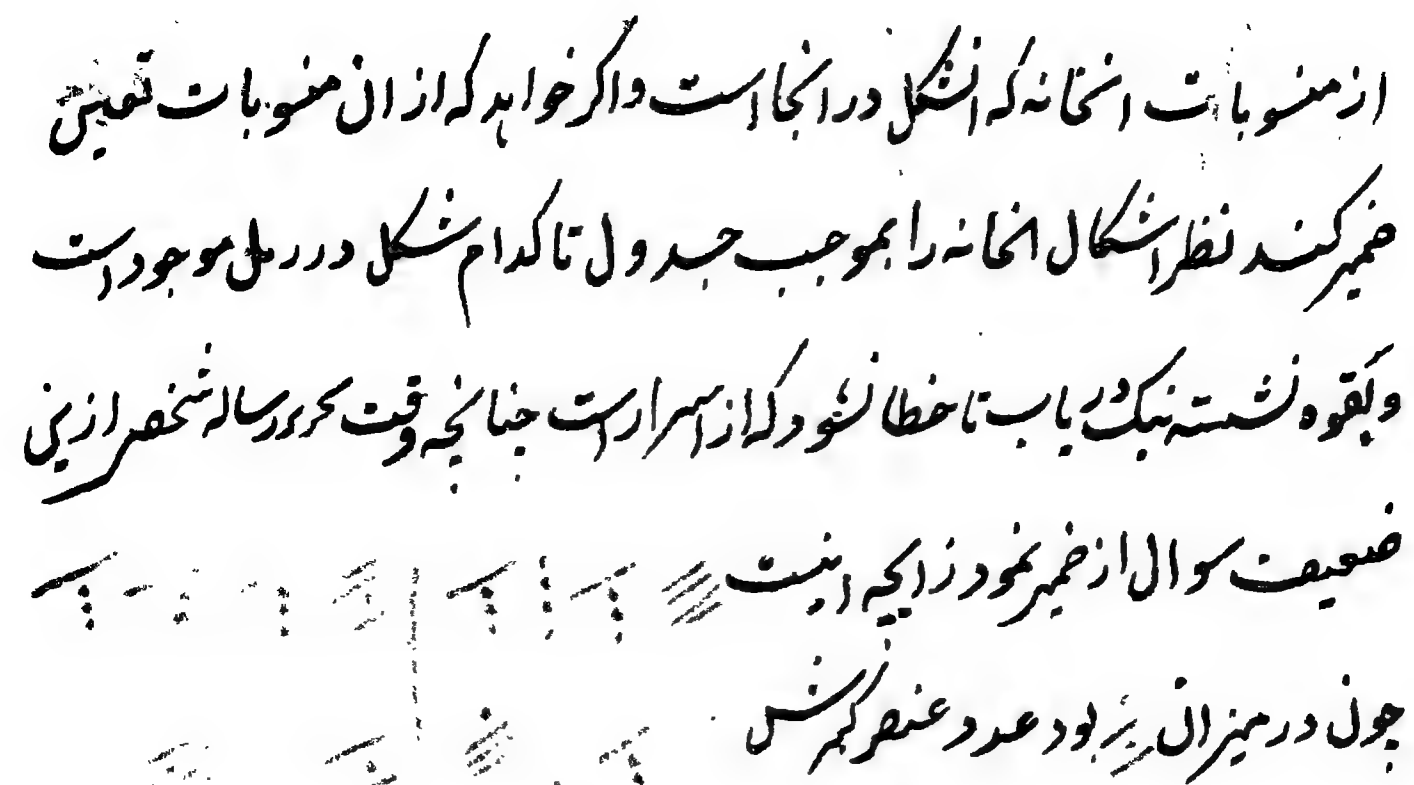 از منسوبات انخانه که انشکل در انجا است واکر خواهد که از ان منسوبات تعین
ضمیر کند نظر اشکال انخانه را بموجب جدول تا کدام شکل در رمل موجود است
وبقوه نشسته نیک دریاب تا خطا نشود که از اسرار است چنانچه وقت تحریر رساله شخصر ازین
ضعیف سوال از ضمیر نمود زایچه اینست
چون در میزان بود عدد عنصر کمرش